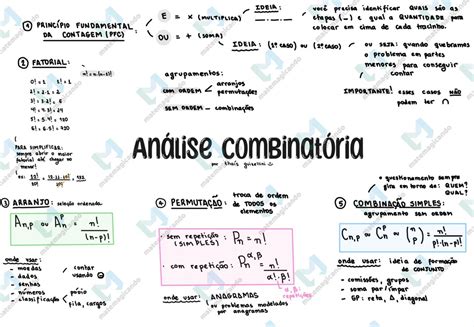 ④ PRINCÍPIO FUNDAMENTAL
DA CONTAGEM (PFC)
E = × (MULTIPLICA)
OU = + (SOMA)
IDEIA:
você precisa identificar QUAIS são as
etapas (_) e qual a QUANTIDADE para
colocar em cima de cada tracinho.
IDEIA (1º CASO) OU (2º CASO)
OU SEJA: quando quebramos
o problema em partes
menores para conseguir
contar
IMPORTANTE! esses casos NÃO
podem ter ∩
① FATORIAL:
n! = n·(n-1)!
0! = 1
1! = 1
2! = 2.1 = 2
3! = 3.2.1 = 6
4! = 4.3.2.1 = 24
5! = 5.4.3.2.1 = 120
6! = 6.5.4.3.2.1 = 720
PARA SIMPLIFICAR:
sempre abrir o maior
fatorial até chegar no
menor!
agrupamentos:
COM ORDEM
arranjos
permutações
SEM ORDEM - combinações
Análise combinatória
por thaís guizellini
③ ARRANJO: seleção ordenada
An,p ou A p n = n! / (n-p)!
onde usar:
- moedas
- dados
- senhas
- números
- classificação
contar
usando
pódio
fila, cargos
④ PERMUTAÇÃO:
troca de ordem
de TODOS os
elementos
- sem repetição: Pn = n!
(SIMPLES)
- com repetição: Pn α,β = n! / α!·β!
α, β:
repetições
onde usar: ANAGRAMAS
ou problemas modelados
por anagramas
o questionamento sempre
gira em torno de: QUEM?
QUAL?
⑤ COMBINAÇÃO SIMPLES:
agrupamento sem ordem
Cn,p ou C p n ou (n p) = n! / p!·(n-p)!
onde usar: ideia de formação
de CONJUNTO
- comissões, grupos
- soma par/ímpar
- GP: reta, Δ, diagonal
matemagicando